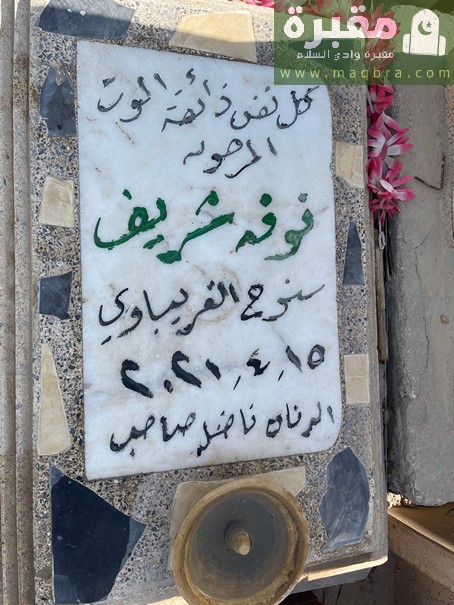 مقبرة
مقبرة وادي السلام
www.maqbra.com
كل نفس ذائقة الموت
المرحومه
نوفه شريف
سنوح الغريباوي
٢٠٢١٫٤٫١٥
الدفان فاضل صاحب